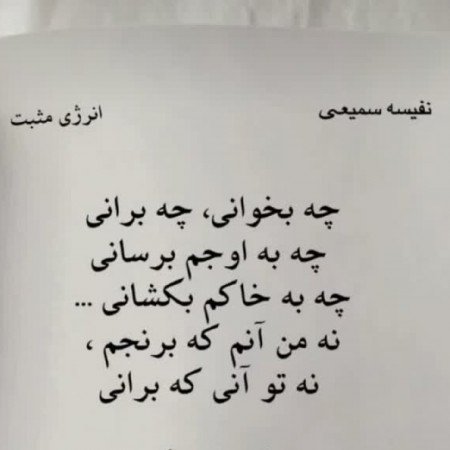 نفیسه سمیعی
انرژی مثبت
چه بخوانی، چه برانی
چه به اوجم برسانی
چه به خاکم بکشانی ...
نه من آنم که برنجم ،
نه تو آنی که برانی